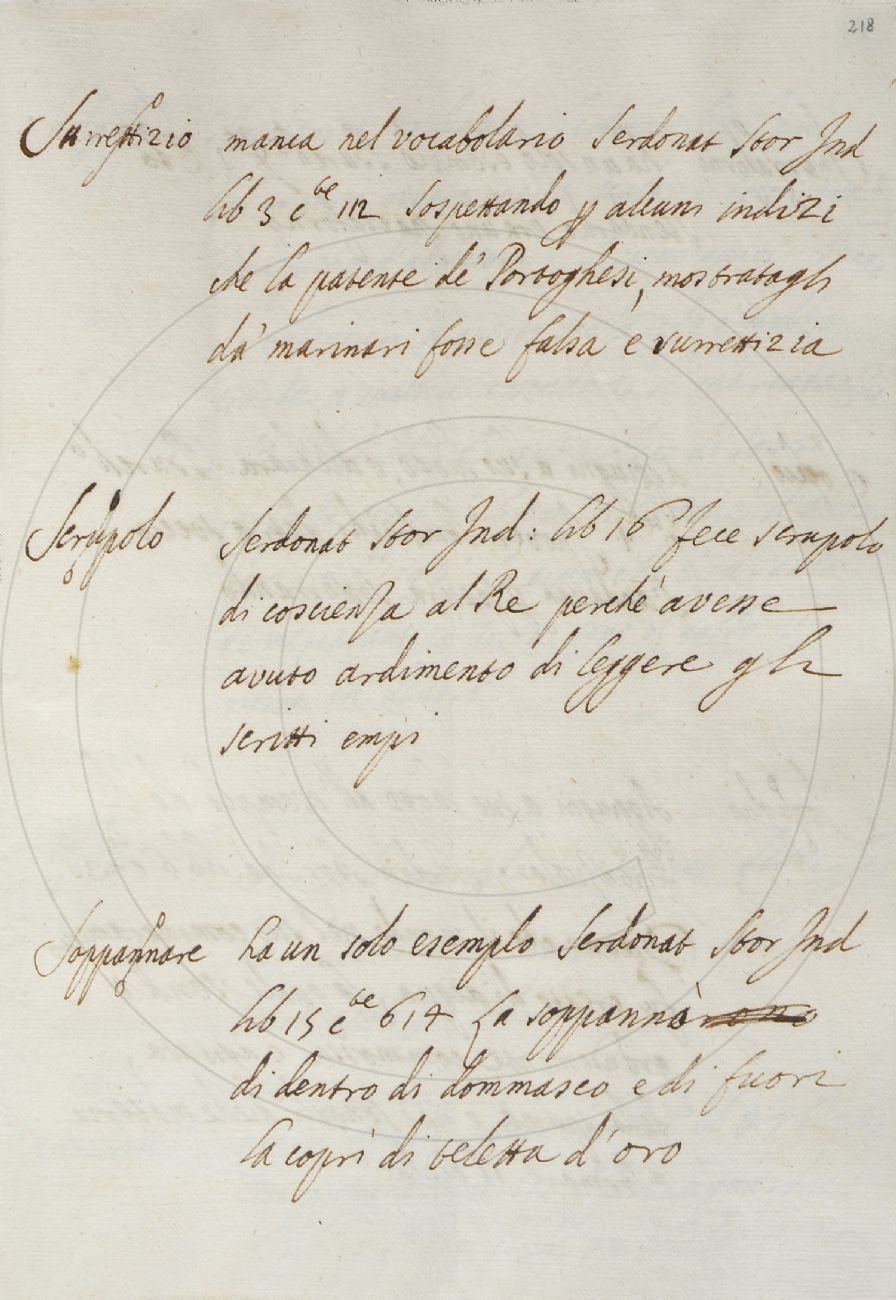 218
Surrettizio manca nel vocabolario Serdonat Stor Ind
lib 3 cte 112 sospettando p alcuni indizi
che la patente de' Portoghesi, mostratagli
da' marinari fosse falsa e surrettizia
Scrupolo Serdonat Stor Ind: lib 16 fece scrupolo
di coscienza al Re perche avesse
avuto ardimento di leggere gli
scritti empi
Soppannare ha un solo esemplo Serdonat Stor Ind
lib 15 cte 614 La soppannò
di dentro di dommasco e di fuori
la coprì di teletta d'oro